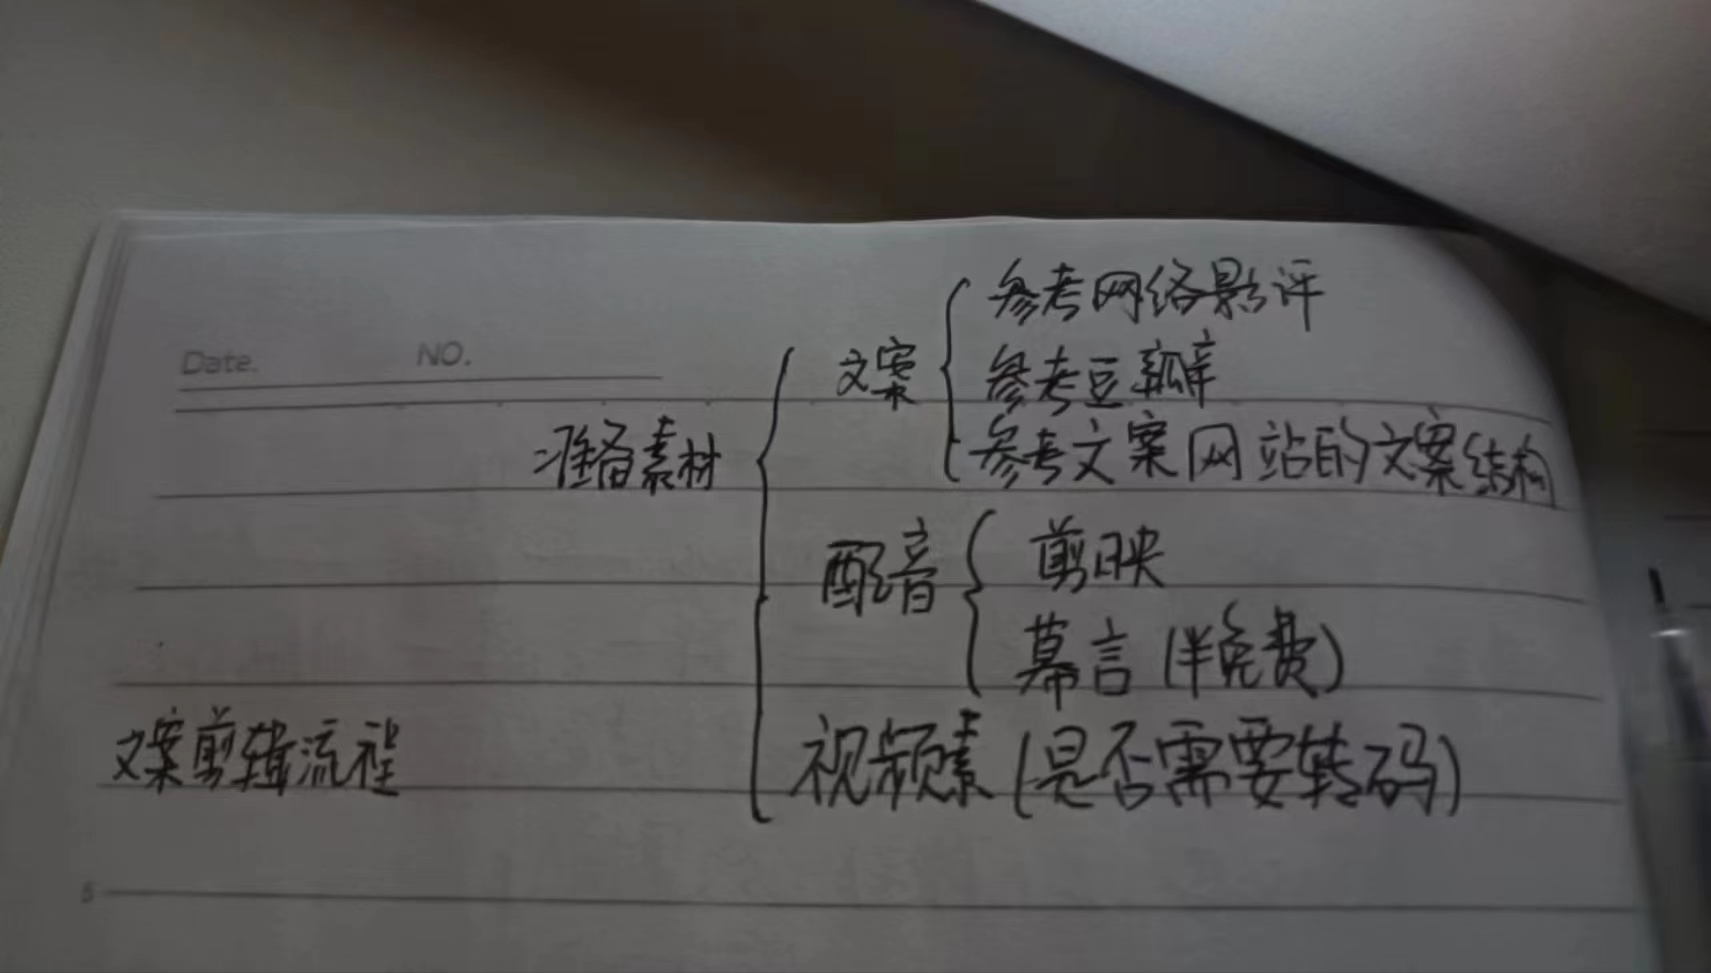 Date. NO.
参考网络影评
文案
参考豆瓣
参考文案网站的文案结构
准备素材
剪映
配音
幕言(半免费)
文案剪辑流程
视频素(是否需要转码)
5